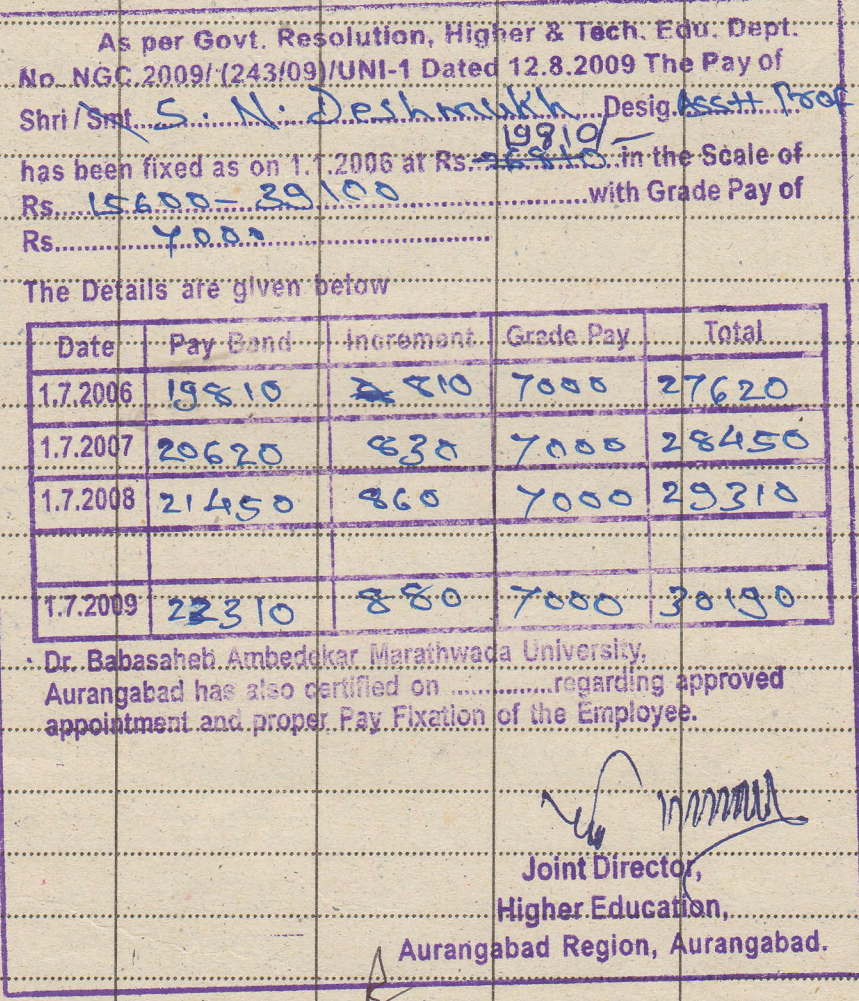 As per Govt. Resolution, Higher & Tech. Edu. Dept.
No. NGC.2009/(243/09)/UNI-1 Dated 12.8.2009 The Pay of
Shri / Smt. S. N. Deshmukh Desig. Asstt Prof
19810/-
has been fixed as on 1.1.2006 at Rs. 26810 in the Scale of
Rs. 15600 - 39100 with Grade Pay of
Rs. 7000
The Details are given below
Date Pay Band Increment Grade Pay Total
1.7.2006 19810 810 7000 27620
1.7.2007 20620 830 7000 28450
1.7.2008 21450 860 7000 29310
1.7.2009 22310 880 7000 30190
Dr. Babasaheb Ambedekar Marathwada University,
Aurangabad has also certified on ..............regarding approved
appointment and proper Pay Fixation of the Employee.
Joint Director,
Higher Education,
Aurangabad Region, Aurangabad.